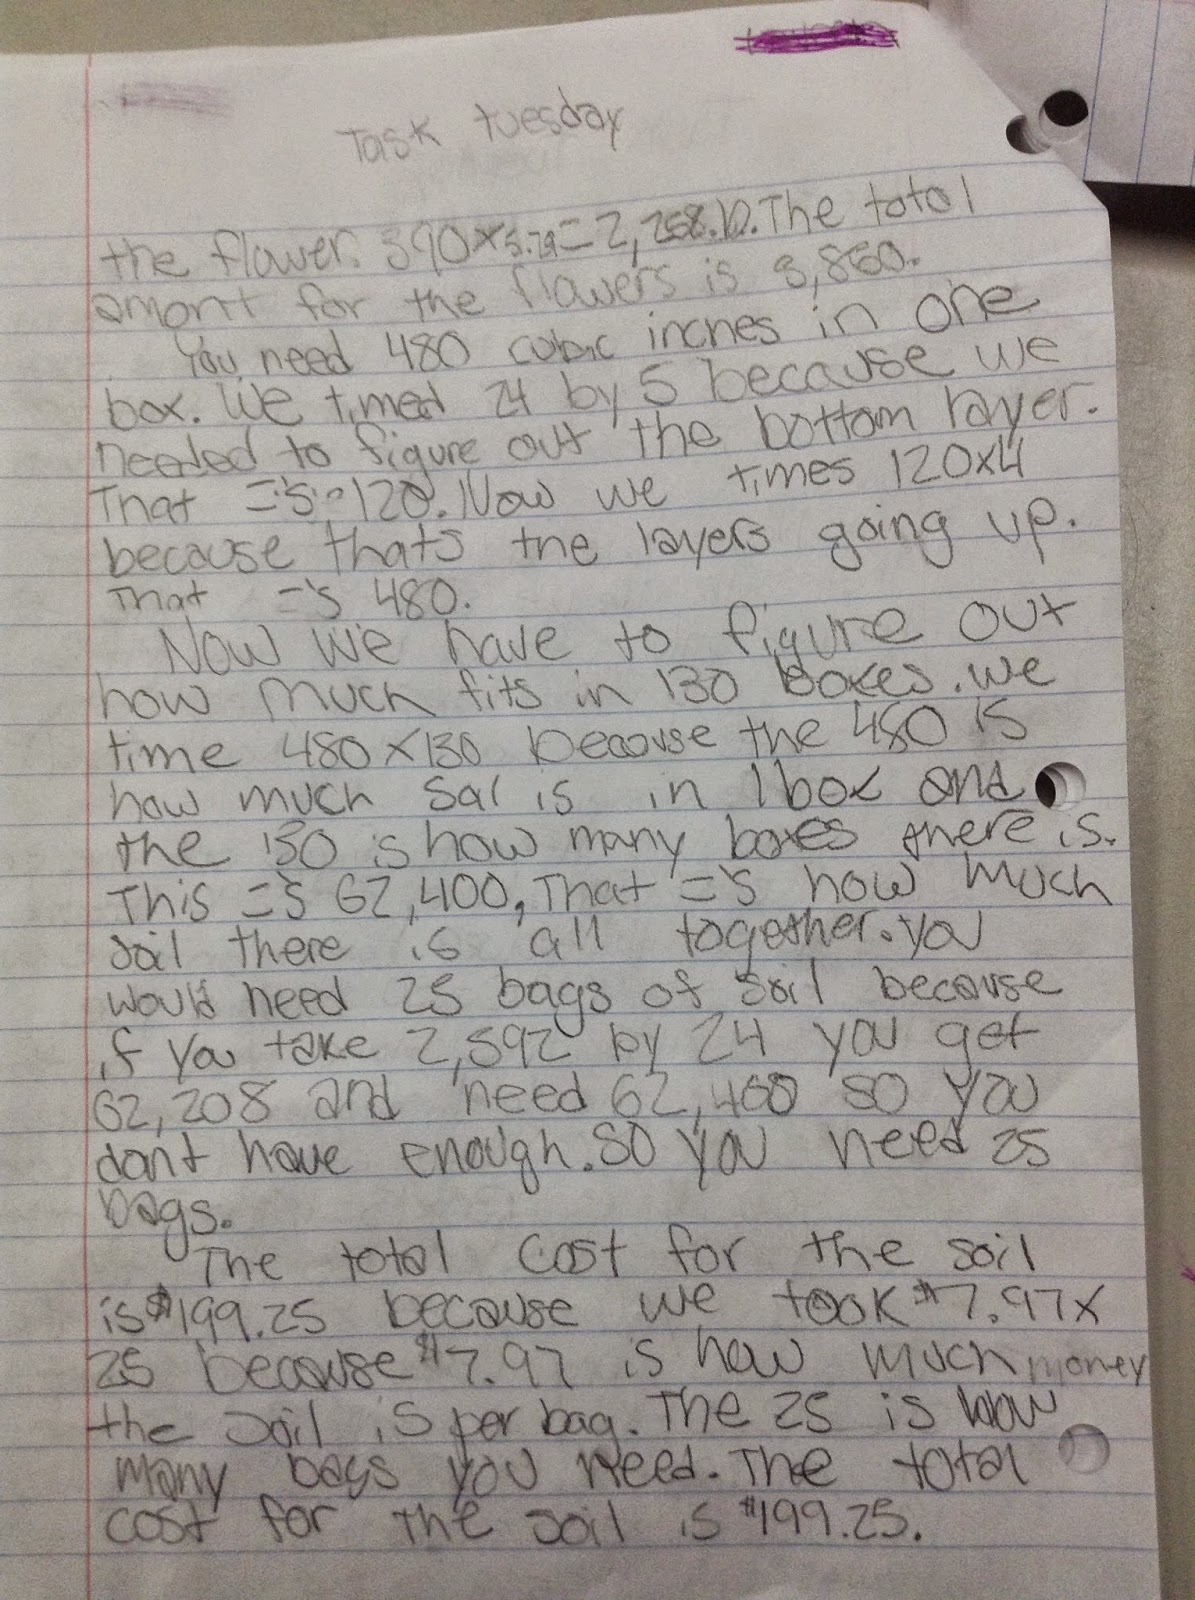 Task tuesday
the flower. 390x5.79=2,258.10. The total
amont for the flowers is 3,860.
You need 480 cubic inches in one
box. We timed 24 by 5 because we
needed to figure out the bottom layer.
That ='s 120. Now we times 120x4
because thats the layers going up.
That ='s 480.
Now we have to figure out
how much fits in 130 boxes. we
time 480x130 because the 480 is
how much soil is in 1 box and
the 130 is how many boxes there is.
This ='s 62,400, That ='s how much
soil there is all together. you
would need 25 bags of soil because
if you take 2,592 by 24 you get
62,208 and need 62,400 so you
dont have enough. So you need 25
bags.
The total cost for the soil
is $199.25 because we took $7.97x
25 because $7.97 is how much money
the soil is per bag. The 25 is how
many bags you need. The total
cost for the soil is $199.25.